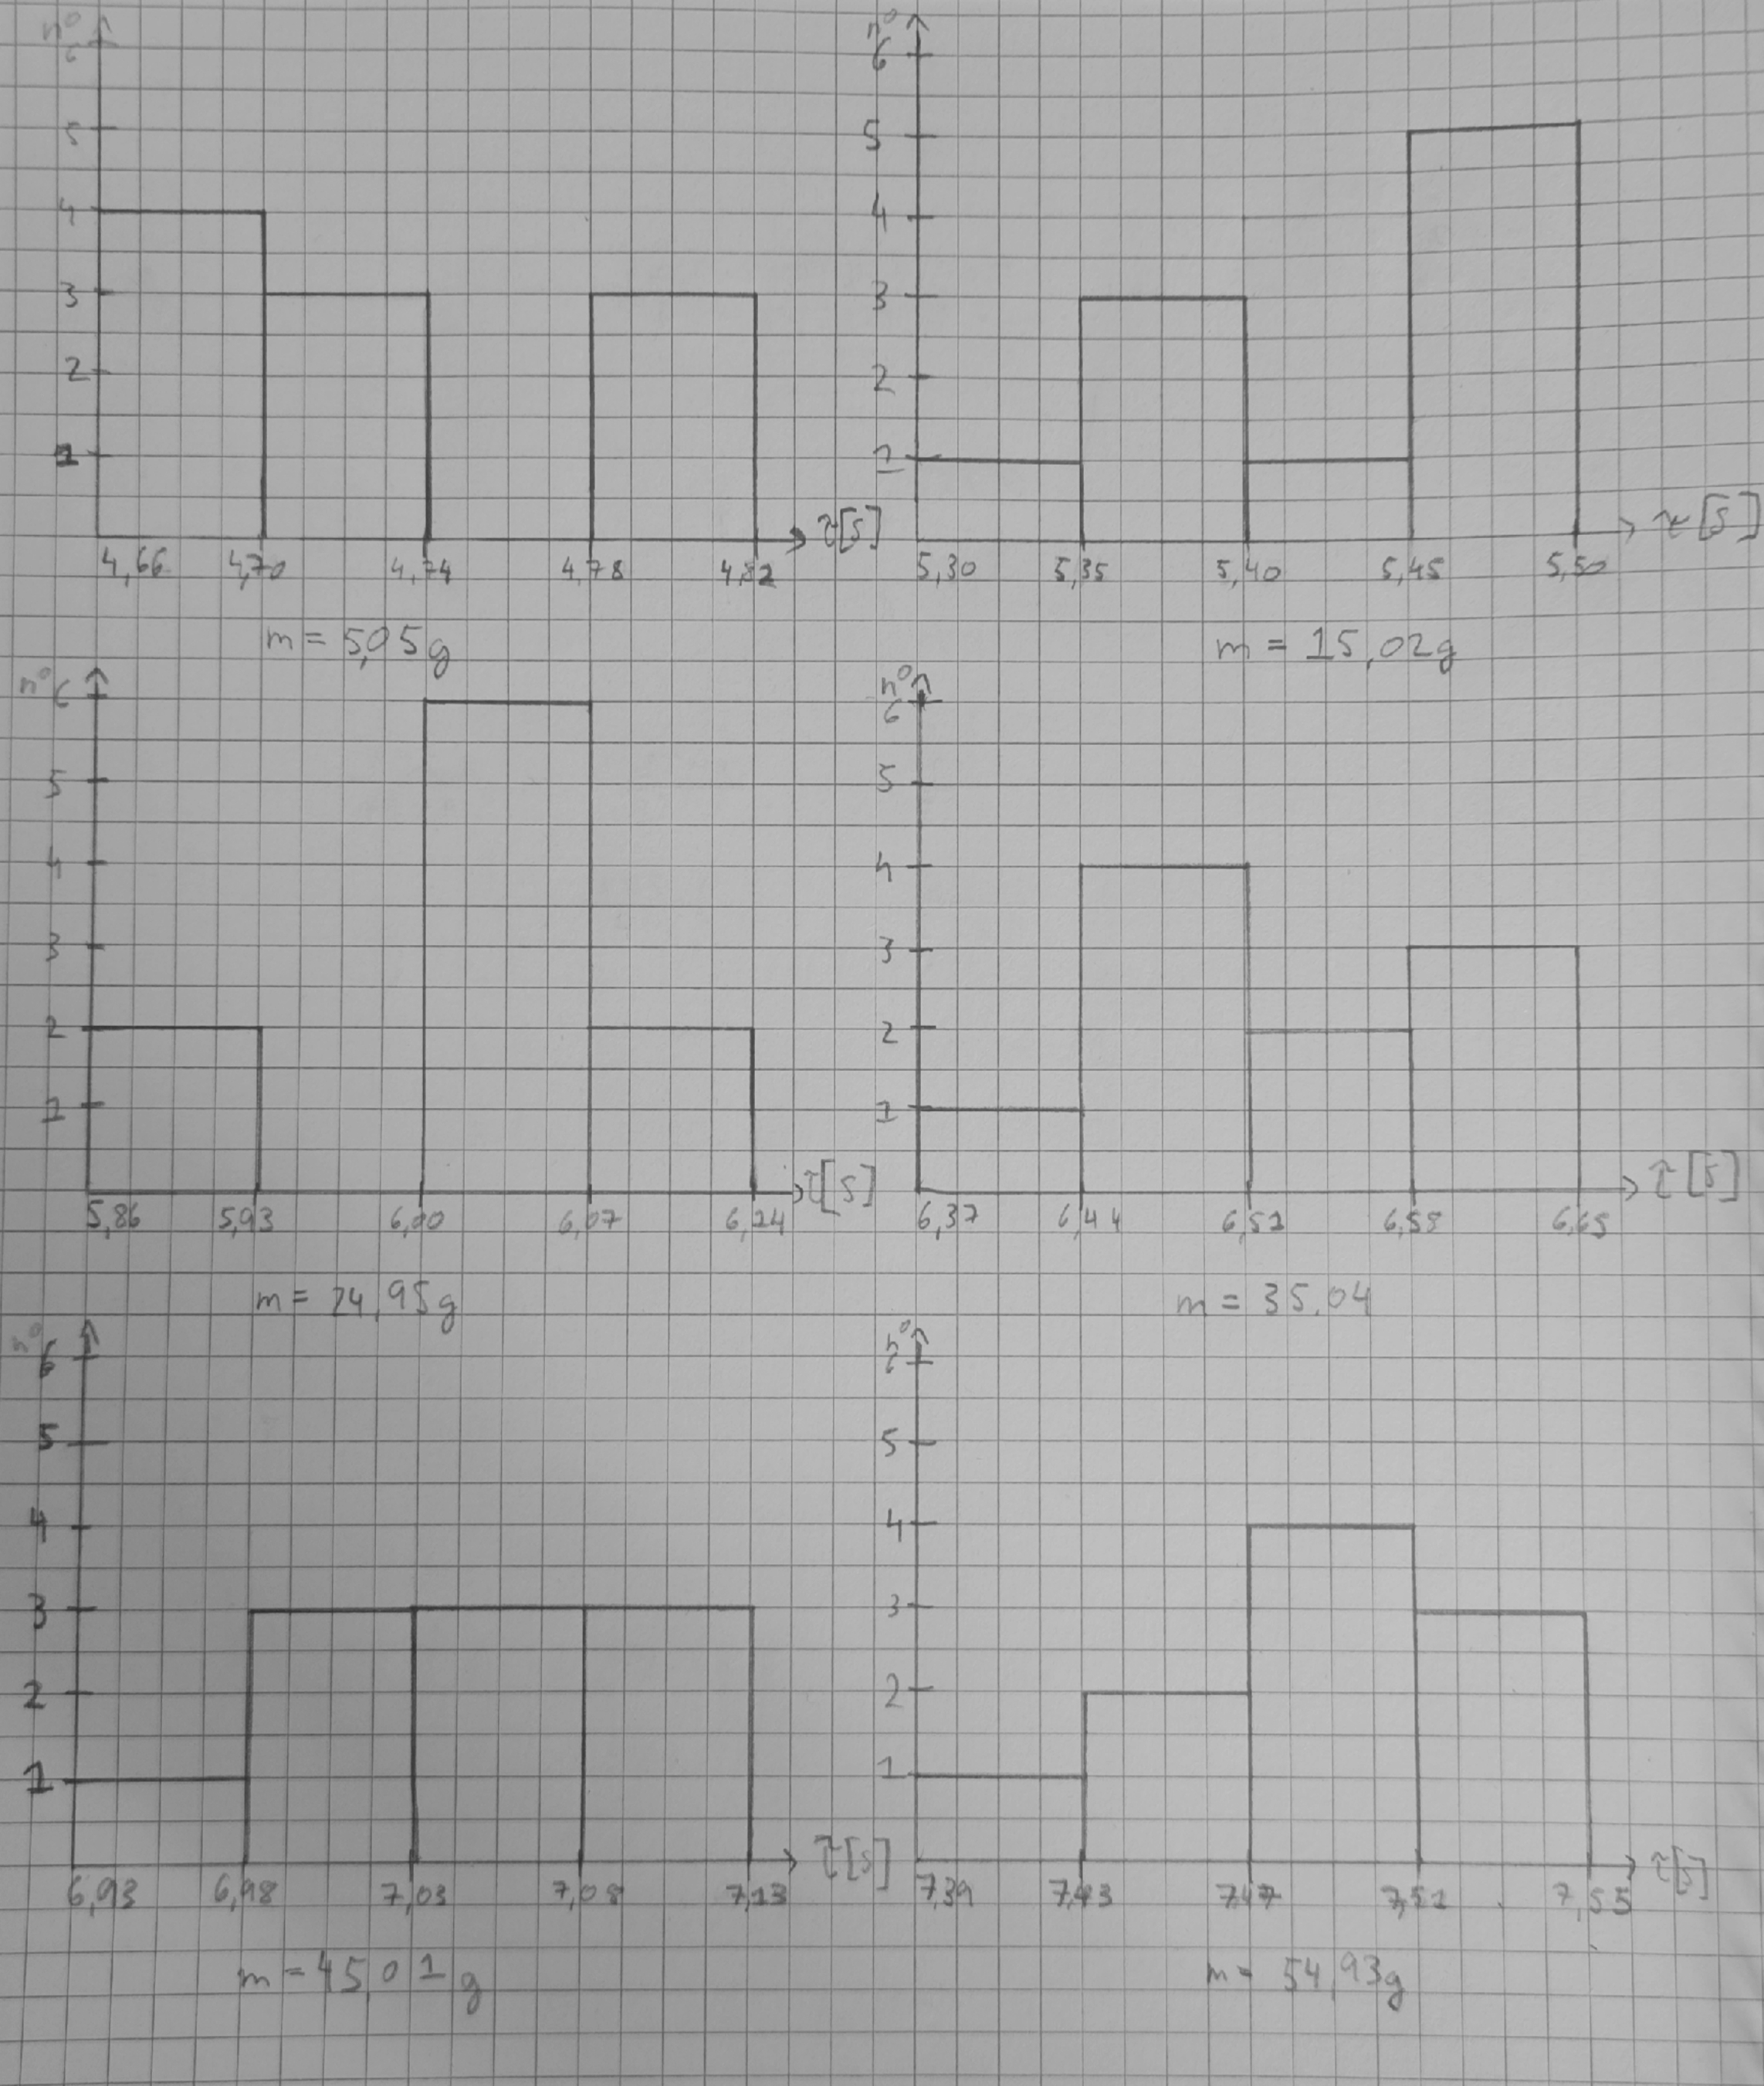 n°
6
5
4
3
2
1
4,66 4,70 4,74 4,78 4,82 τ[s]
m = 5,05g
n°
6
5
4
3
2
1
5,30 5,35 5,40 5,45 5,50 τ[s]
m = 15,02g
n°
6
5
4
3
2
1
5,86 5,93 6,00 6,07 τ[s]
m = 24,95g
n°
6
5
4
3
2
1
6,37 6,44 6,51 6,65 τ[s]
m = 35,04
n°
6
5
4
3
2
1
6,93 6,98 7,03 7,08 7,13 τ[s]
m = 45,01g
n°
6
5
4
3
2
1
7,39 7,43 7,47 7,51 7,55 τ[s]
m = 54,93g